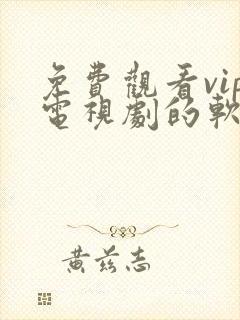 免費觀看vip
電視劇的軟
黃茲志